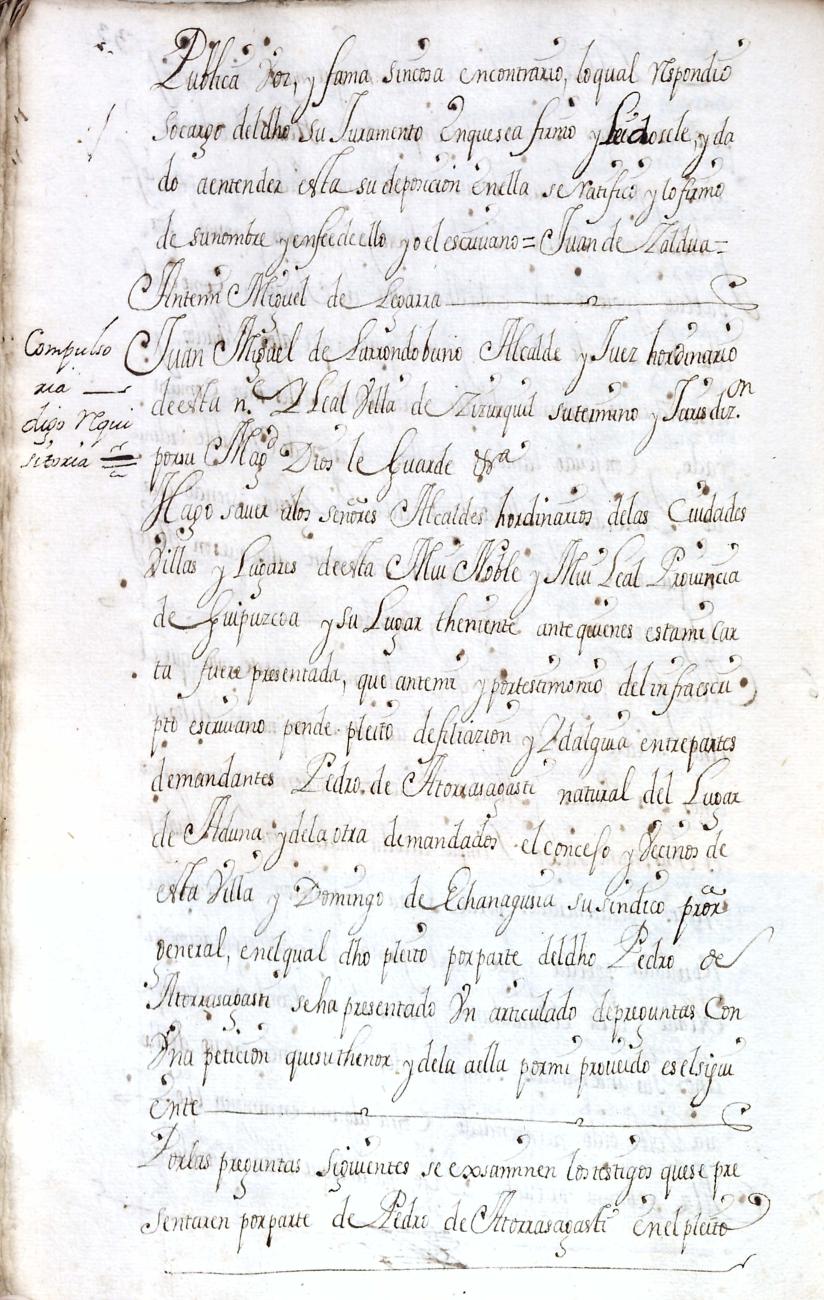 Publica Voz, y fama sin cosa en contrario, lo qual respondio
so cargo del dho su Juramento en que se a firmo y leidosele, y da
do a entender esta su deposicion en ella se ratifico y lo firmo
de su nombre y en fee de ello yo el escriuano = Juan de Zaldua =
Antemi Miguel de Legarra
Compulso
ria
digo requi
sitoria =
Juan Miguel de Larrondobuno Alcalde y Juez hordinario
de esta n.e y Leal Villa de Zizurquil su termino y Jurisdiz.on
por su Magd Dios le Guarde &ra
Hago sauer a los señores Alcaldes hordinarios de las Ciudades
Villas y Lugares de esta Mui Noble y Mui Leal Prouincia
de Guipuzcoa y su Lugar theniente ante quienes esta mi Car
ta fuere presentada, que antemi y por testimonio del infraescri
pto escriuano pende pleito de filiazion y Ydalguia entre partes
demandantes Pedro de Atorrasagasti natural del Lugar
de Aduna y de la otra demandados el concejo y Vecinos de
esta Villa y Domingo de Echanagusia su sindico pror
general, en el qual dho pleito por parte del dho Pedro de
Atorrasagasti se ha presentado Vn articulado de preguntas Con
Vna peticion qui su thenor y de la a ella por mi proueido es el sigui
ente
Por las preguntas siguientes se exsaminen los testigos que se pre
sentaren por parte de Pedro de Atorrasagasti en el pleito